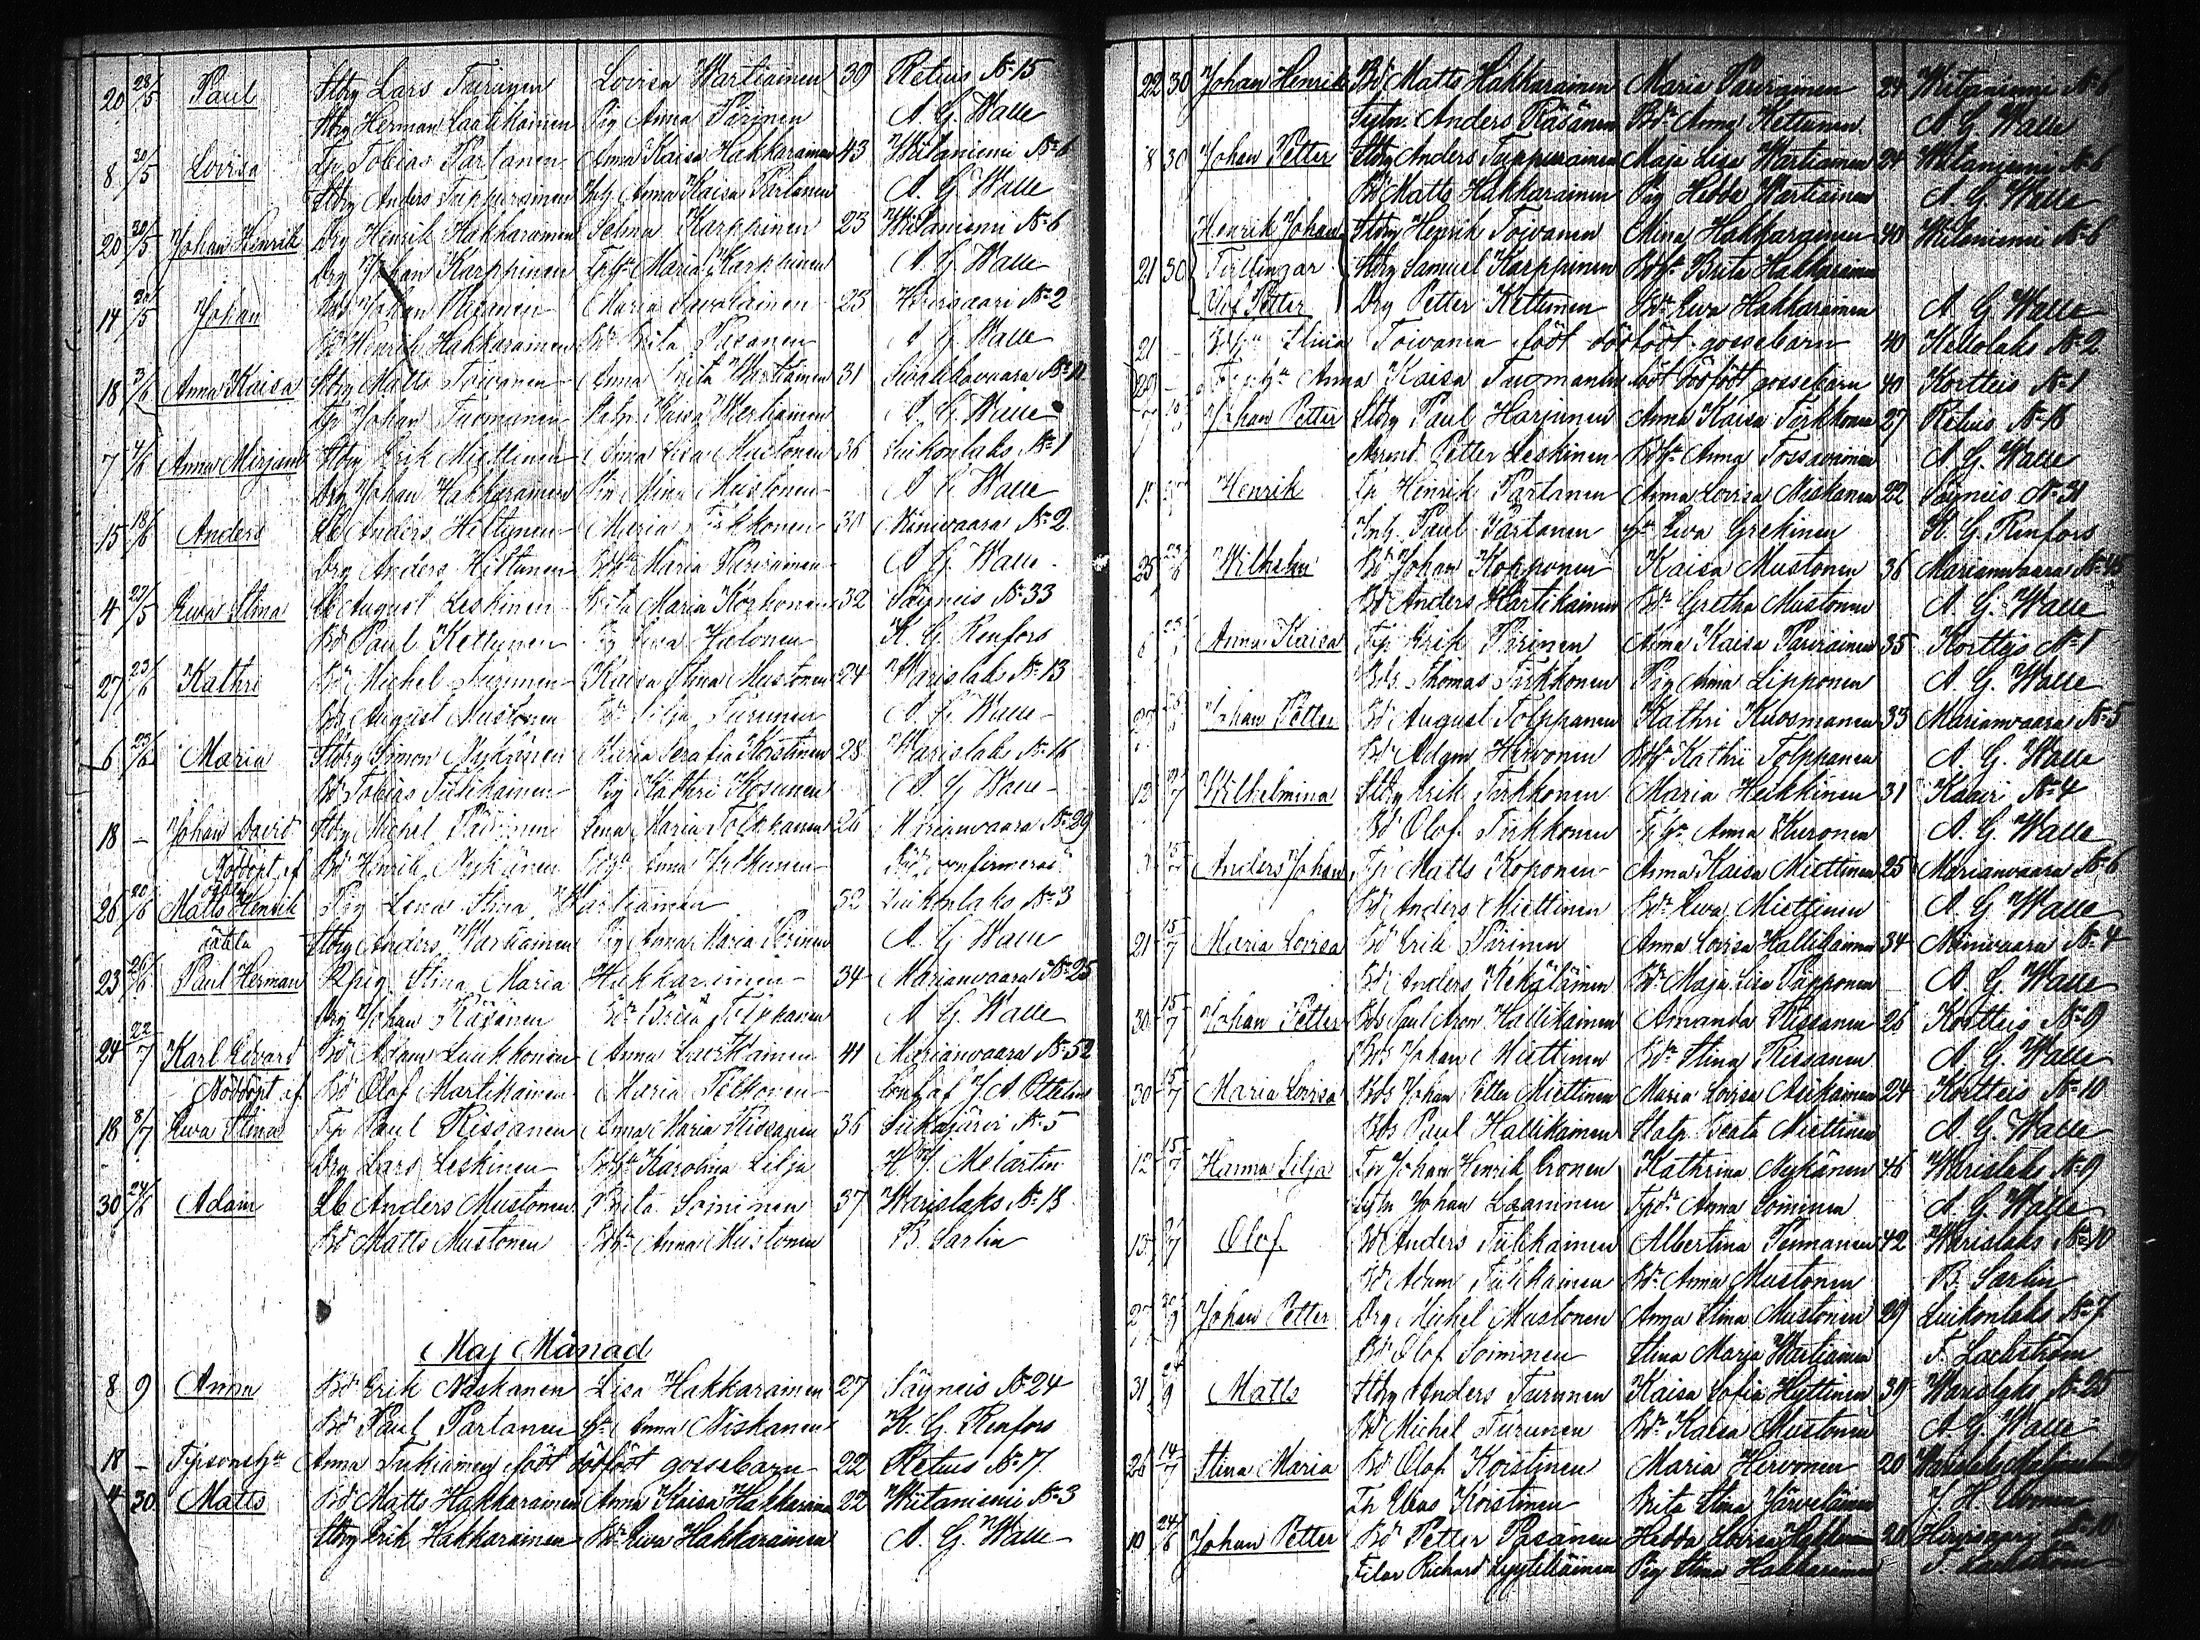 20 28/5 Paul Stbg Lars Turunen Lovisa Wartiainen 30 Retuis № 15
Stbg Herman Laatikainen Pig Anna Pirinen A. G. Walle
8 20/5 Lovisa Tp Tobias Partanen Anna Kaisa Hakkarainen 43 Witaniemi № 6
Stbg Anders Tuppurainen Inh Anna Kaisa Partanen A. G. Walle
20 20/5 Johan Henrik Drg Henrik Hakkarainen Selma Karppinen 23 Witaniemi № 6
Drg Johan Karppinen Maria Karppinen A. G. Walle
14 20/5 Johan Bds Johan Pasanen Maria Savolainen 25 Hirvisaari № 2
Bd Henrik Hakkarainen Bdr Brita Pasanen A G Walle
18 3/6 Anna Kaisa Stbg Matts Toivanen Anna Brita Wartiainen 31 Sivakkavaara № 12
Tp Johan Tuomainen Wartiainen A. G. Walle
7 7/6 Anna Mirjam Stbg Erik Miettinen Anna Lisa Mustonen 36 Luikonlaks № 1
Drg Johan Hakkarainen Pig Mina Mustonen A G Walle
15 18/6 Anders Lb Anders Hiltunen Maria Tirkkonen 30 Niinivaara № 2
Drg Anders Hiltunen Bdhu Maria Parviainen A G Walle
4 27/5 Ewa Stina Lb August Leskinen Brita Maria Korhonen 32 Säyneis № 33
Bd Paul Kettunen Pig Ewa Jalonen K. G. Renfors
27 23/6 Kathri Bd Michel Turunen Kaisa Stina Mustonen 24 Warislaks № 13
Bds August Mustonen Bdr Silja Turunen A. G. Walle
6 23/6 Maria Stbg Simon Nykänen Maria Serafia Koistinen 28 Warislaks № 16
Bd Tobias Tulikainen Pig Kathri Kosunen A G Walle
18 – Johan David Stbg Michel Päivinen Lena Maria Tolppanen 26 Marianvaara № 29
Nöddöpt af Bd Henrik Nykänen Anna
26 20/6 Matts Henrik Pig Lena Stina Wartiainen 32 Luikonlaks № 3
oäkta Stbg Anders Wartiainen Pig Anna Maria Pirinen A. G. Walle
23 26/6 Paul Herman Rpig Stina Maria Hakkarainen 34 Marianvaara № 25
Drg Johan Räsänen Bdr Brita Tolppanen A. G. Walle
24 22/7 Karl Edvard Bd Adam Luukkonen Anna Laatikainen 41 Marianvaara № 52
Nöddöpt af Bd Olof Martikainen Maria Pölkonen Conf. af J A Ottelin
18 8/7 Ewa Stina Tp Paul Rissanen Anna Maria Rissanen 36 Siikajärvi № 5
Drg Lars Leskinen Bdhu Karolina Lilja K. J. Melartin
30 24/6 Adam Lb Anders Mustonen Brita Soininen 37 Warislaks № 18
Bd Matts Mustonen Bdhu Anna Mustonen B. Sarlin
Maj Månad
8 9 Anna Bd Erik Niskanen Lisa Hakkarainen 27 Säyneis № 24
Bd Paul Partanen hu Anna Niskanen K. G. Renfors
18 – Tpsonshu Anna Tukiainen född dödfödt gossebarn 22 Retuis № 17
4 30 Matts Bd Matts Hakkarainen Anna Kaisa Hakkarainen 22 Witaniemi № 3
Stbg Erik Hakkarainen Bdr Ewa Hakkarainen A. G. Walle
22 30 Johan Henrik Bd Matts Hakkarainen Maria Parviainen 24 Witaniemi № 6
Anders Räsänen Bdr Anna Kettunen A. G. Walle
8 30 Johan Petter Stbg Anders Tuppurainen Maja Lisa Wartiainen 24 Witaniemi № 6
Bd Matts Hakkarainen Pig Hedda Wartiainen A. G. Walle
Henrik Johan Stbg Henrik Toivanen Mina Hakkarainen 40 Witaniemi № 6
21 30 Tvillingar Stbg Samuel Karppinen Bdhu Brita Hakkarainen
Olof Petter Drg Petter Kettunen Bdr Ewa Hakkarainen A G Walle
21 – Toivanen född dödfödt gossebarn 40 Kellolaks № 2
29 – Anna Kaisa Tuomainen född dödfödt gossebarn 40 Kortteis № 1
Johan Petter Stbg Paul Harjunen Anna Kaisa Tirkkonen 27 Retuis № 18
Petter Leskinen Bdhu Anna Tossavainen A. G. Walle
Henrik Tp Henrik Partanen Anna Lovisa Niskanen 22 Säyneis № 31
Inh. Paul Partanen hu Ewa Grekinen K. G. Renfors
25 Wilhelm Bd Johan Kopponen Kaisa Mustonen 36 Marianvaara № 45
Bd Anders Martikainen Bdr Gretha Mustonen A. G. Walle
6 Anna Kaisa Tp Erik Pirinen Anna Kaisa Parviainen 35 Kortteis № 1
Bds Thomas Tirkkonen Pig Anna Lipponen A. G. Walle
Johan Petter Bd August Tolppanen Kathri Kuosmanen 33 Marianvaara № 5
Bd Adam Hirvonen Bdhu Kathri Tolppanen A. G. Walle
12 Wilhelmina Stbg Erik Tirkkonen Maria Heikkinen 31 Kaavi № 4
Bd Olof Tirkkonen Anna Kuronen A. G. Walle
Anders Johan Tp Matts Koponen Anna Kaisa Miettinen 25 Marianvaara № 6
Bd Anders Miettinen Bdr Ewa Miettinen A. G Walle
21 15/7 Maria Lovisa Bd Erik Pirinen Anna Lovisa Hallikainen 34 Niinivaara № 4
Bd Anders Kekäläinen Bdr Maja Lisa Papponen A. G. Walle
30 15/7 Johan Petter Bds Paul Aron Hallikainen Amanda Rissanen 26 Kortteis № 9
Bds Johan Miettinen Bdr Stina Rissanen A. G. Walle
30 15/7 Maria Lovisa Bds Johan Petter Miettinen Maria Lovisa Asikainen 24 Kortteis № 10
Bds Paul Hallikainen Beata Miettinen A. G. Walle
12 15/7 Hanna Silja Tp Johan Henrik Eronen Kathrina Nykänen 46 Warislaks № 9
Johan Laaninen Anna Soininen A. G. Walle
13 Olof Bd Anders Tulikainen Albertina Pennanen 42 Warislaks № 10
Bd Adam Tulikainen Bdr Anna Mustonen B. Sarlin
27 Johan Petter Drg Michel Mustonen Anna Stina Mustonen 29 Luikonlaks № 7
Bd Olof Soininen Stina Maria Wartiainen F. Lackström
31 Matts Stbg Anders Turunen Kaisa Sofia Hyttinen 39 Warislaks № 25
Bd Michel Turunen Bdr Kaisa Mustonen A G Walle
26 14/7 Stina Maria Bd Olof Koistinen Maria Hirvonen 20 Warislaks
Tp Koistinen Brita Stina
10 24/6 Johan Petter Bd Petter Pasanen Hedda Lovisa 28 Hirvisaari № 10
Richard Lyytikäinen Pig Stina Hakkarainen F. Lackström